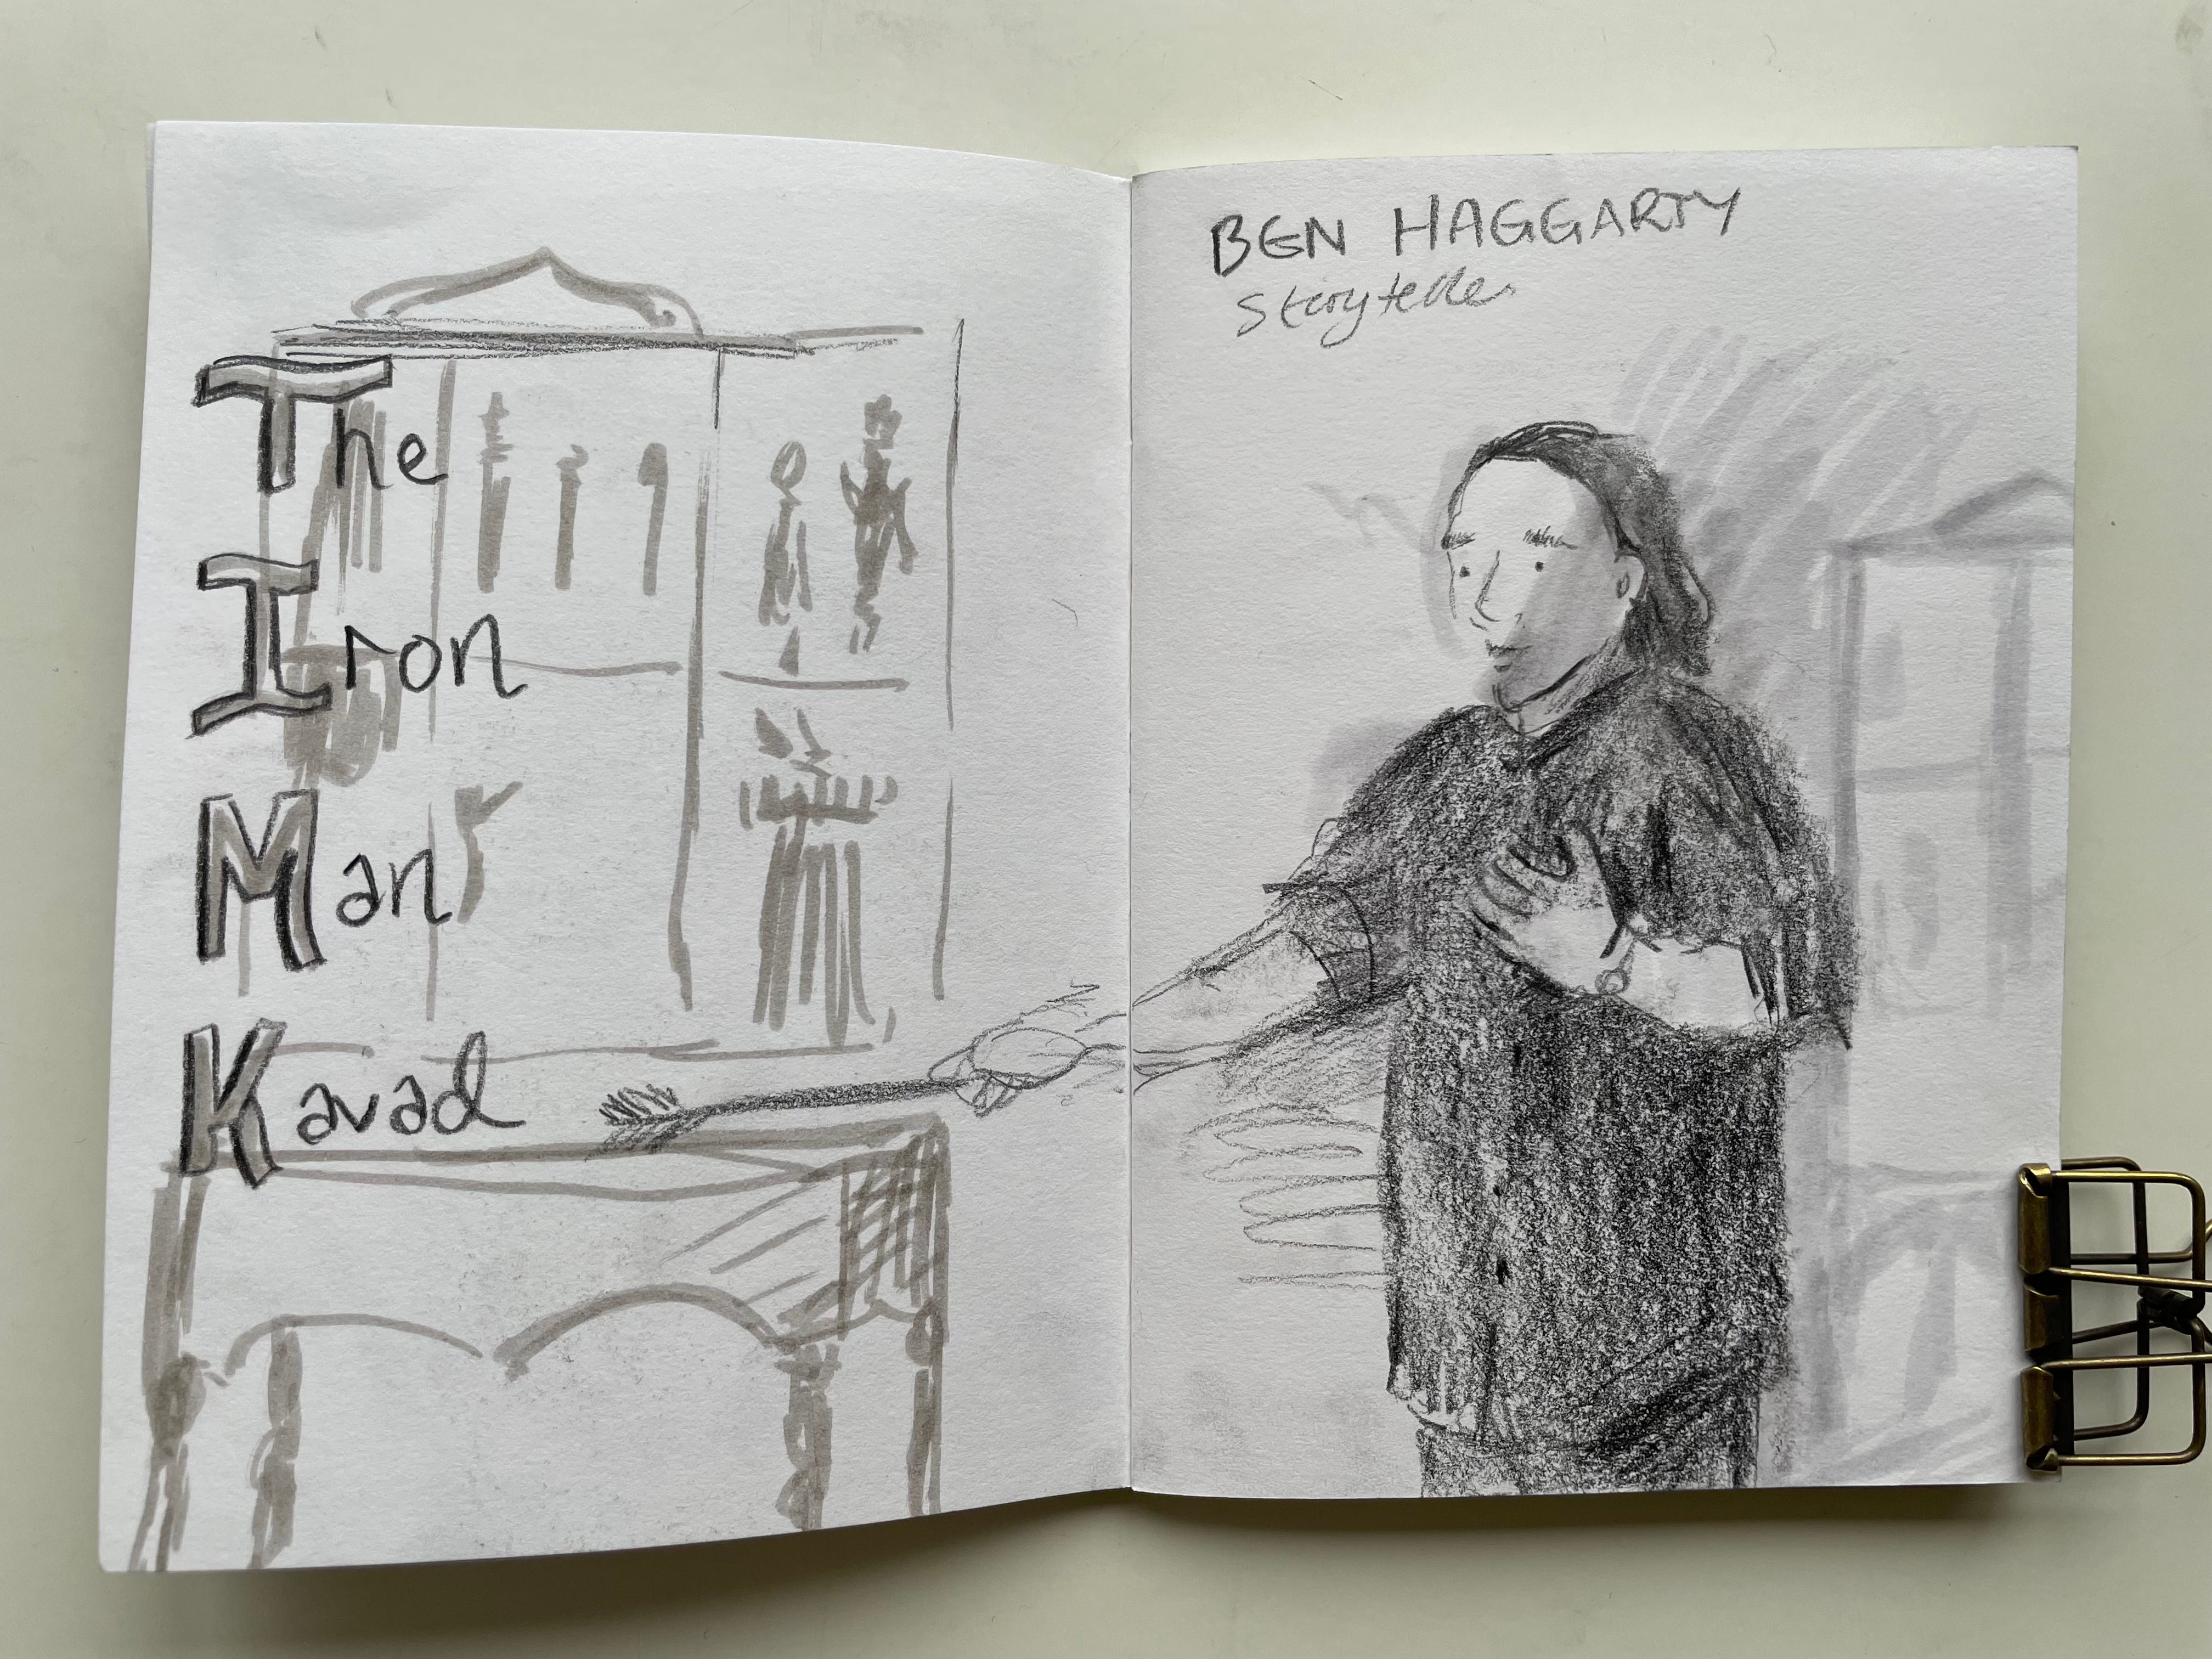 The
Iron
Man
Kavad
BEN HAGGARTY
Storyteller